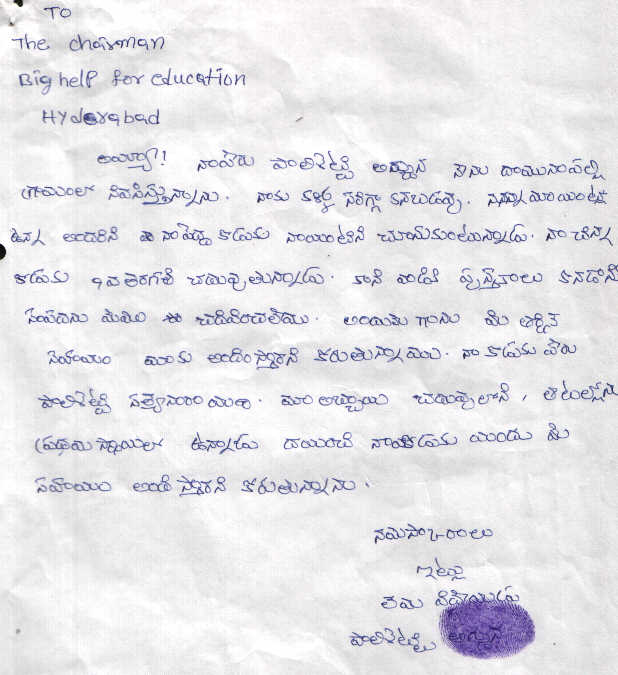 TO
The chairman
Big help for education
Hyderabad
అయ్యా! నాపేరు పొలిశెట్టి అచ్చన నేను రామునిపల్లి
గ్రామంలో నివసిస్తున్నాను. నాకు కళ్ళు సరిగ్గా కనబడవు.
ఉన్న అందరిని నా పెద్ద కొడుకు చూసుకుంటున్నాడు. నా చిన్న
కొడుకు 9వ తరగతి చదువుతున్నాడు. కాని వాడికి పుస్తకాలు కొనడానికి
మేము చదివించలేము. మీ తగిన
సహాయం మాకు అందిస్తారని కోరుతున్నాము. నా కొడుకు పేరు
పొలిశెట్టి సత్యనారాయణ. మా అబ్బాయి చదువులోనే, ఆటల్లోను
ప్రథమ స్థాయిలో ఉన్నాడు దయించి నా కొడుకు యందు మీ
సహాయం అందిస్తారని కోరుతున్నాను.
నమస్కారాలు
ఇట్లు
తమ విధేయుడు
పొలిశెట్టి